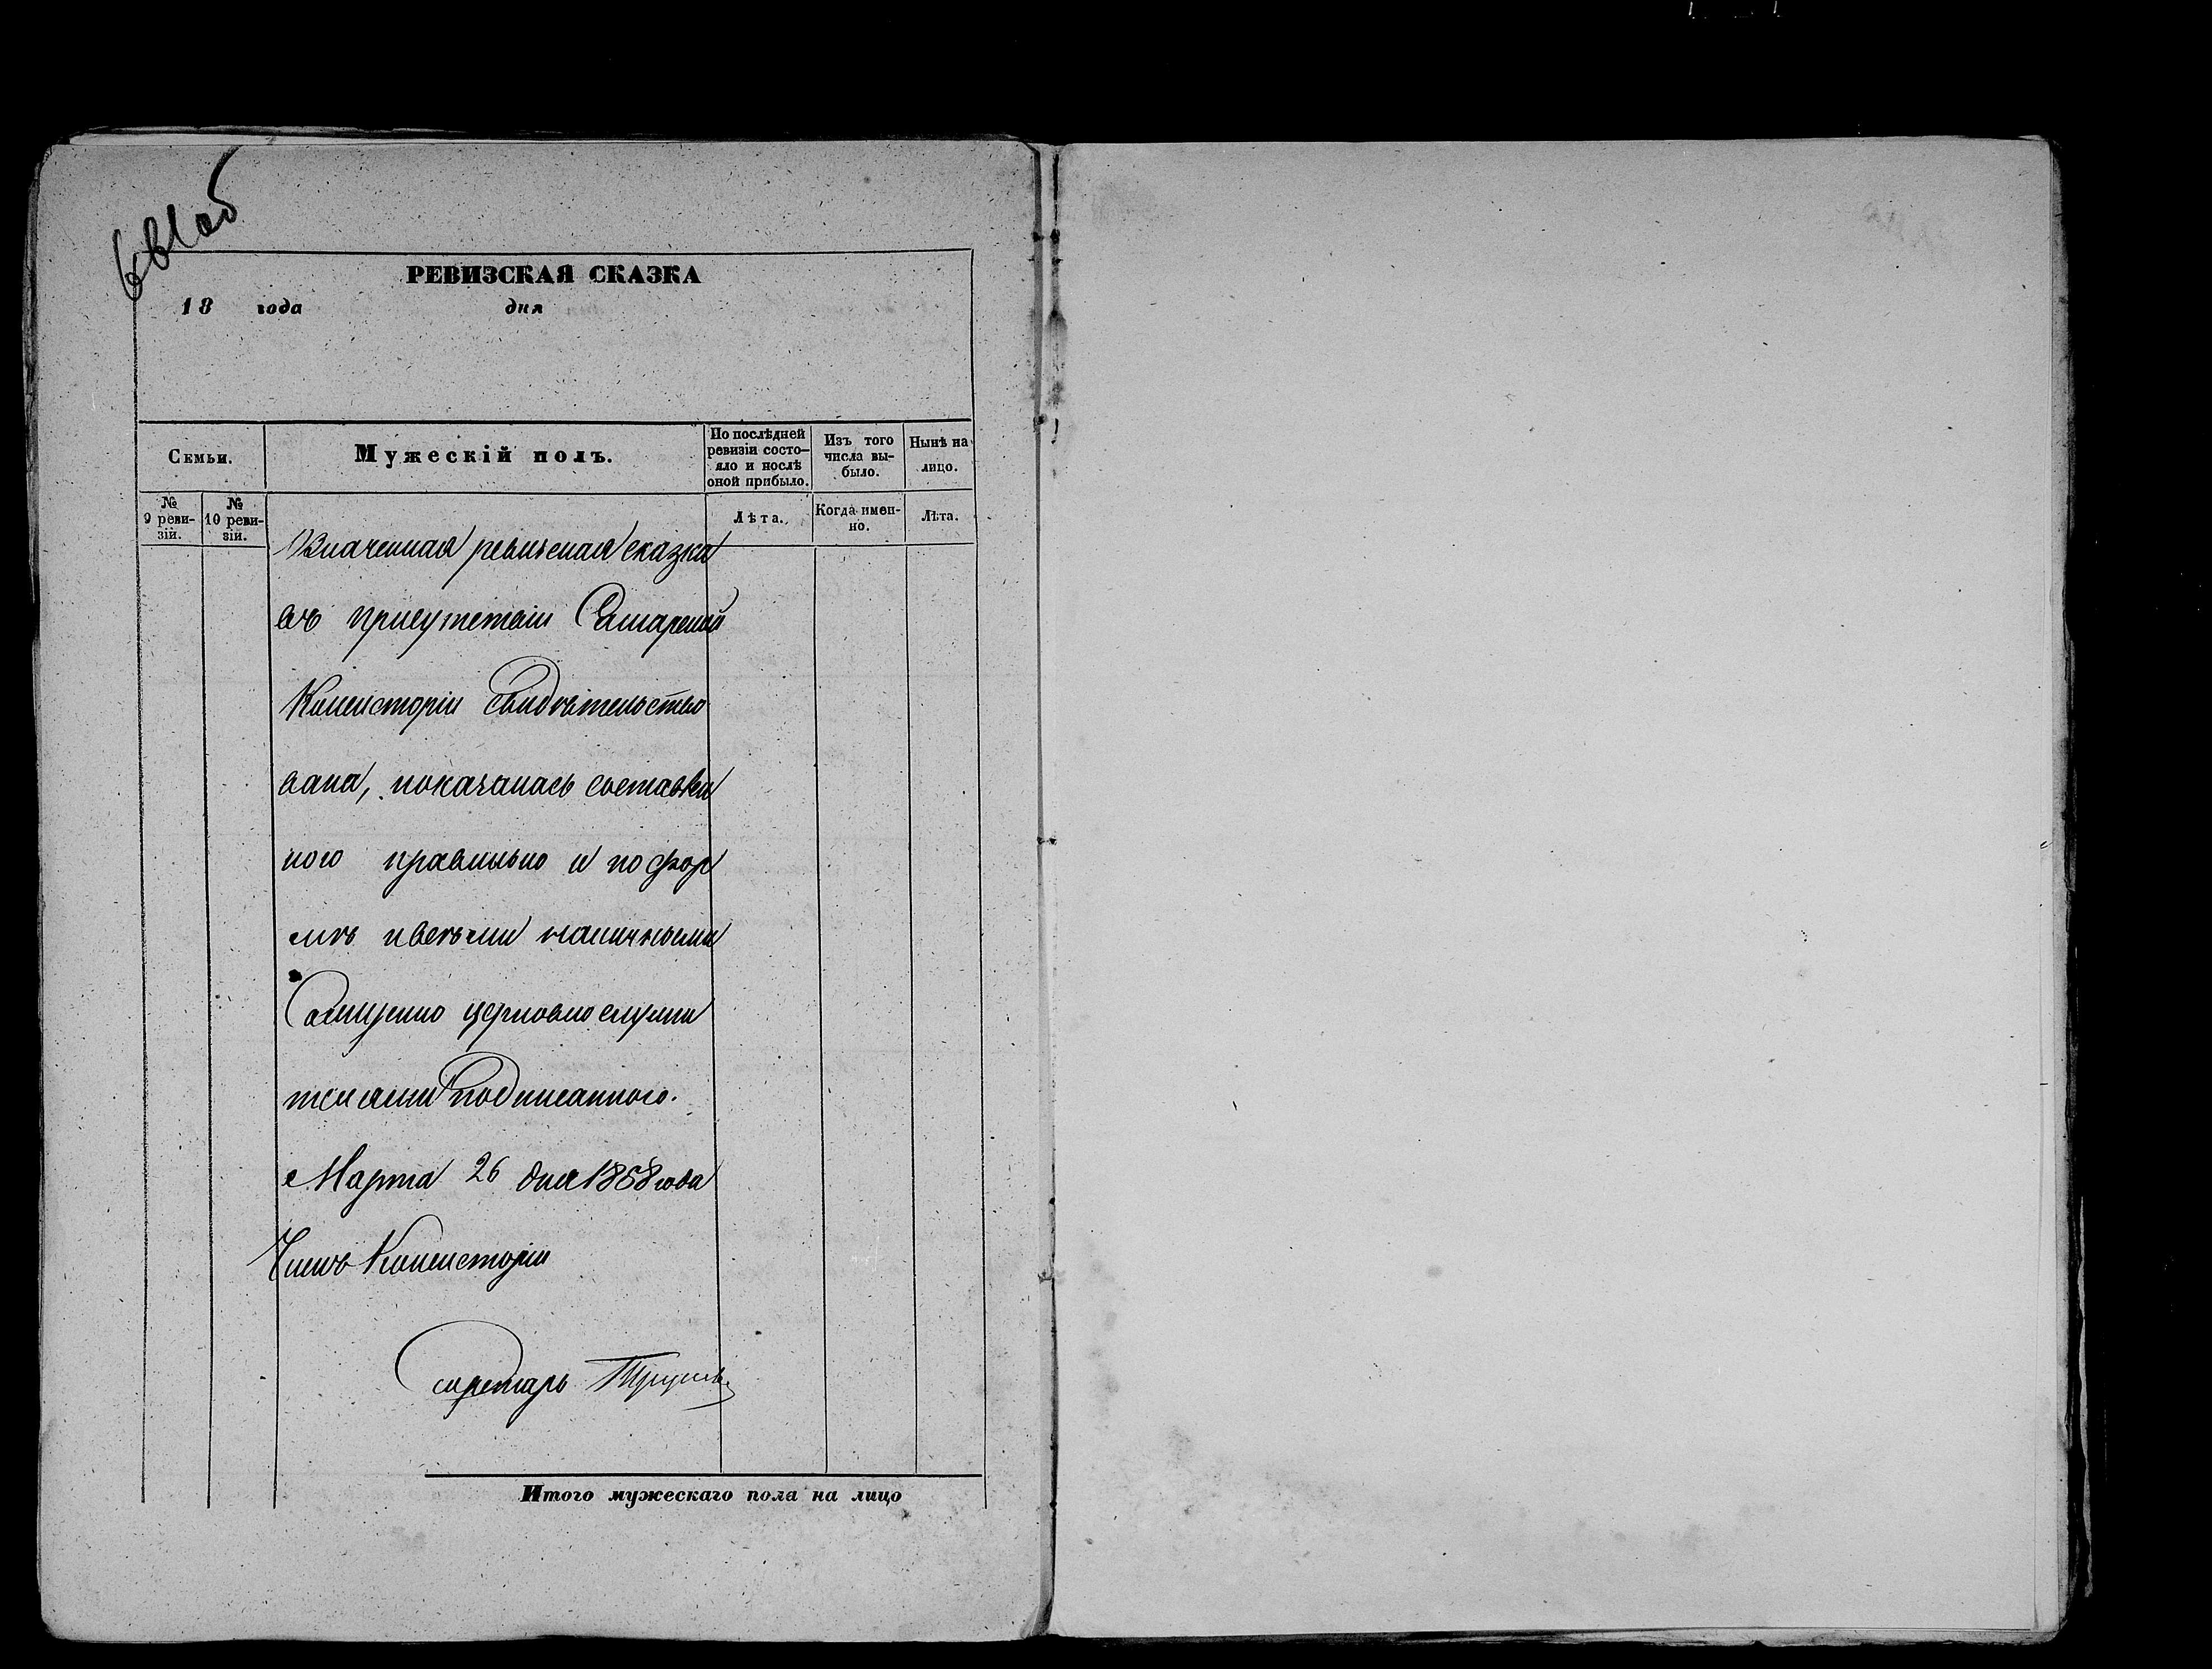 661об
РЕВИЗСКАЯ СКАЗКА
18 года дня
Семьи.
Мужескій полъ.
По послѣдней ревизіи состо-яло и послѣ оной прибыло.
Изъ того числа вы-было.
Нынѣ на лицо.
№ 9 реви-зіи.
№ 10 реви-зіи.
Лѣта.
Когда имен-но.
Лѣта.
Означенная ревизская сказка
въ присутствіи Самарской
Консисторіи свидѣтельство
вана, показалась составлен
ною правильно и по фор
мѣ и всѣми наличными
Священно церковнослужи
телями подписанною.
Марта 26 дня 1858 года
Членъ Консисторіи
Секретарь
Итого мужескаго пола на лицо